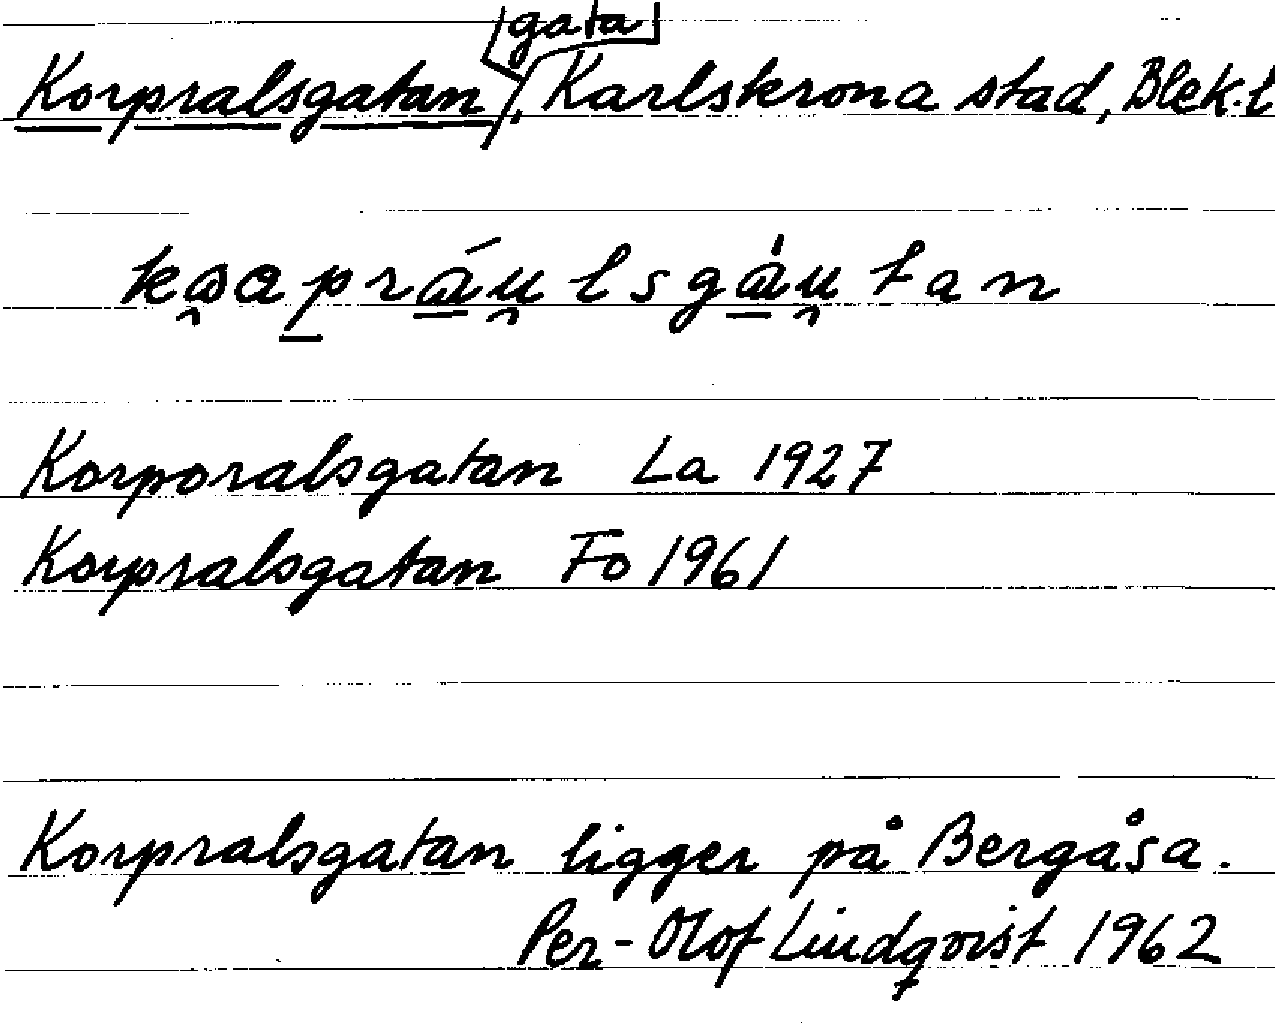 gata
Korpralsgatan, Karlskrona stad, Blek. l
Korporalsgatan La 1927
Korpralsgatan Fo 1961
Korpralsgatan ligger på Bergåsa.
Per-Olof Lindqvist 1962